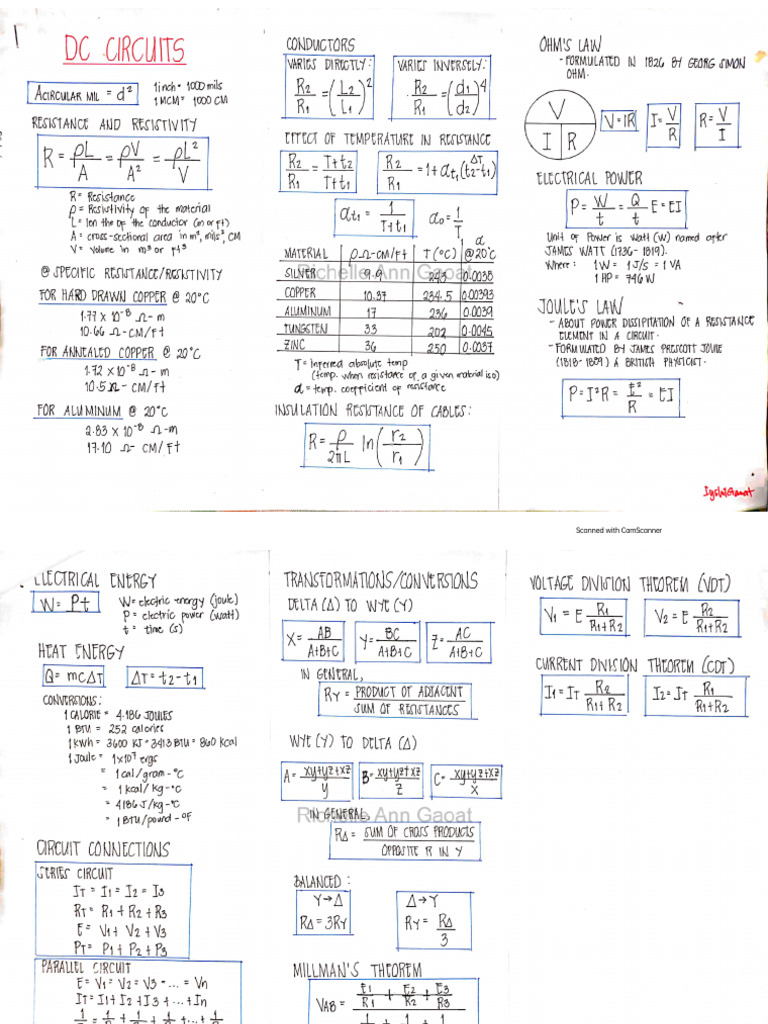 DC CIRCUITS
A CIRCULAR MIL = d²
1 inch = 1000 mils
1 MCM = 1000 CM
RESISTANCE AND RESISTIVITY
R = ρL/A = ρV/A² = ρL²/V
R = Resistance
ρ = Resistivity of the material
L = len the of the conductor (m or ft)
A = cross-sectional area in m², mils², CM
V = volume in m³ or ft³
@ SPECIFIC RESISTANCE/RESISTIVITY
FOR HARD DRAWN COPPER @ 20°C
1.77 x 10⁻⁸ Ω-m
10.66 Ω-CM/ft
FOR ANNEALED COPPER @ 20°C
1.72 x 10⁻⁸ Ω-m
10.5 Ω-CM/ft
FOR ALUMINUM @ 20°C
2.83 x 10⁻⁸ Ω-m
17.10 Ω-CM/ft
CONDUCTORS
VARIES DIRECTLY:
R2/R1 = (L2/L1)²
VARIES INVERSELY:
R2/R1 = (d1/d2)⁴
EFFECT OF TEMPERATURE IN RESISTANCE
R2/R1 = T+t2/T+t1
R2/R1 = 1+αt1(t2-t1) ΔT
αt1 = 1/T+t1
α0 = 1/T
MATERIAL ρ Ω-CM/ft T(°C) α @20°C
SILVER 9.9 243 0.0038
COPPER 10.37 234.5 0.00393
ALUMINUM 17 236 0.0039
TUNGSTEN 33 202 0.0045
ZINC 36 250 0.0037
Richelle Ann Gaoat
T = Inferred absolute temp
(temp. when resistance of a given material is 0)
α = temp. coefficient of resistance
INSULATION RESISTANCE OF CABLES:
R = ρ/2πL ln(r2/r1)
OHM'S LAW
- FORMULATED IN 1826 BY GEORG SIMON
OHM.
V
I R
V=IR
I = V/R
R = V/I
ELECTRICAL POWER
P = W/t = Q/t E = EI
Unit of Power is Watt (W) named after
JAMES WATT (1736-1819).
Where: 1 W = 1 J/s = 1 VA
1 HP = 746 W
JOULE'S LAW
- ABOUT POWER DISSIPITATION OF A RESISTANCE
ELEMENT IN A CIRCUIT.
- FORMULATED BY JAMES PRESCOTT JOULE
(1818-1889) A BRITISH PHYSICIST.
P = I²R = E²/R = EI
Scanned with CamScanner
ELECTRICAL ENERGY
W = Pt
W = electric energy (joule)
P = electric power (watt)
t = time (s)
HEAT ENERGY
Q = mcΔT
ΔT = t2-t1
CONVERSIONS:
1 CALORIE = 4.186 JOULES
1 BTU = 252 calories
1 kWh = 3600 KJ = 3413 BTU = 860 kcal
1 Joule = 1x10⁷ ergs
= 1 cal/gram-°C
= 1 kcal/kg-°C
= 4186 J/kg-°C
= 1 BTU/pound-°F
CIRCUIT CONNECTIONS
SERIES CIRCUIT
IT = I1 = I2 = I3
RT = R1 + R2 + R3
E = V1 + V2 + V3
PT = P1 + P2 + P3
PARALLEL CIRCUIT
E = V1 = V2 = V3 - ... = Vn
IT = I1 + I2 + I3 + ... + In
TRANSFORMATIONS/CONVERSIONS
DELTA (Δ) TO WYE (Y)
X = AB/A+B+C
Y = BC/A+B+C
Z = AC/A+B+C
IN GENERAL,
RY = PRODUCT OF ADJACENT/SUM OF RESISTANCES
WYE (Y) TO DELTA (Δ)
A = xy+yz+xz/y
B = xy+yz+xz/z
C = xy+yz+xz/x
Richelle Ann Gaoat
IN GENERAL,
RΔ = SUM OF CROSS PRODUCTS/OPPOSITE R IN Y
BALANCED:
Y→Δ
RΔ = 3RY
Δ→Y
RY = RΔ/3
MILLMAN'S THEOREM
VAB = E1/R1 + E2/R2 + E3/R3
VOLTAGE DIVISION THEOREM (VDT)
V1 = E R1/R1+R2
V2 = E R2/R1+R2
CURRENT DIVISION THEOREM (CDT)
I1 = IT R2/R1+R2
I2 = IT R1/R1+R2